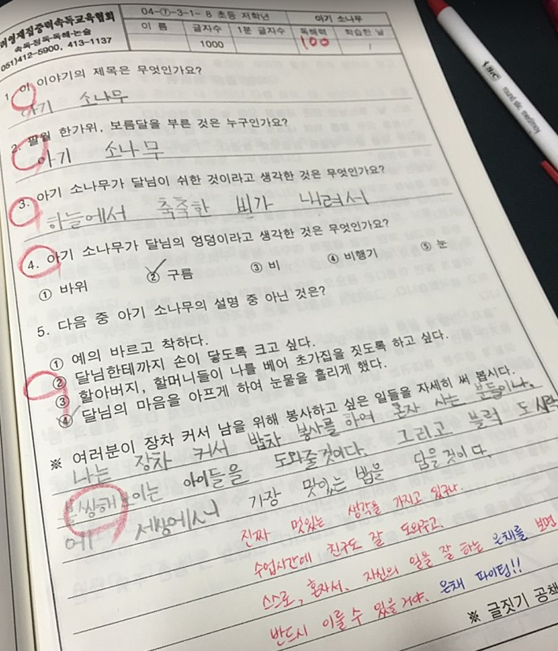 비영재집중력속독교육협회
속독·정독·독해·논술
051)412-5900, 413-1137
04-⑦-3-1- 8 초등 저학년
아기 소나무
이 름
글자수
1분 글자수
독해력
학습한 날
1000
100
/
1. 이 이야기의 제목은 무엇인가요?
아기 소나무
2. 팔월 한가위, 보름달을 부른 것은 누구인가요?
아기 소나무
3. 아기 소나무가 달님이 쉬한 것이라고 생각한 것은 무엇인가요?
하늘에서 촉촉한 비가 내려서
4. 아기 소나무가 달님의 엉덩이라고 생각한 것은 무엇인가요?
① 바위 ② 구름 ③ 비 ④ 비행기 ⑤ 눈
5. 다음 중 아기 소나무의 설명 중 아닌 것은?
① 예의 바르고 착하다.
② 달님한테까지 손이 닿도록 크고 싶다.
③ 할아버지, 할머니들이 나를 베어 초가집을 짓도록 하고 싶다.
④ 달님의 마음을 아프게 하여 눈물을 흘리게 했다.
※ 여러분이 장차 커서 남을 위해 봉사하고 싶은 일들을 자세히 써 봅시다.
나는 장차 커서 밥차 봉사를 하여 혼자 사는 분들이나,
불쌍해 보이는 아이들을 도와줄것이다. 그리고 블럭 도시락
에 세상에서 가장 맛있는 밥을 담을것이다.
진짜 멋있는 생각을 가지고 있구나.
수업시간에 친구도 잘 도와주고,
스스로, 혼자서, 자신의 일을 잘 하는 은채를 보면
반드시 이룰 수 있을거야. 은채 파이팅!!
※ 글짓기 공책